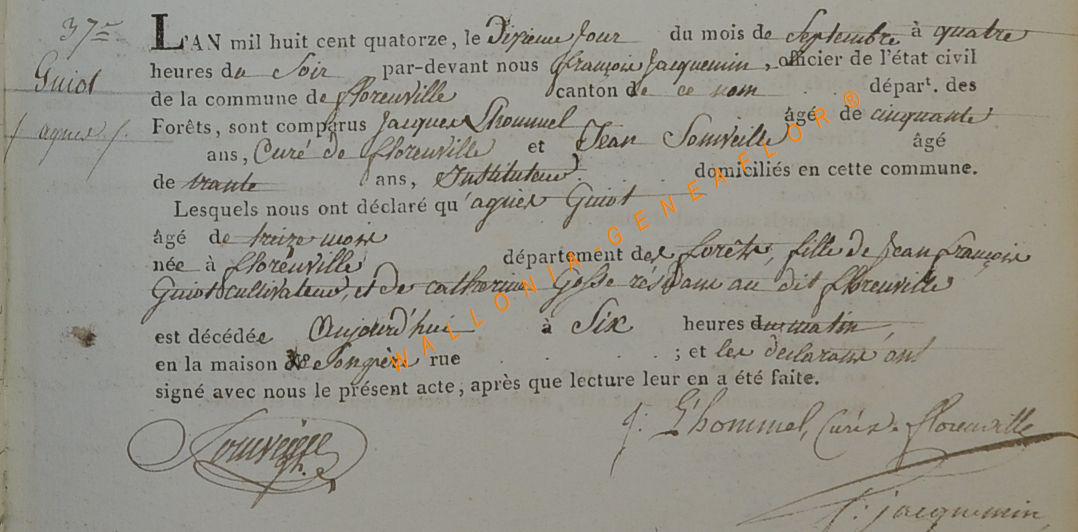 37e
Guiot
agnes
L'AN mil huit cent quatorze, le Dixieme Jour du mois de Septembre à quatre
heures du Soir par-devant nous françois Jacquemin, officier de l'état civil
de la commune de florenville canton de ce nom départ. des
Forêts, sont comparus Jacques Lhommel âgé de cinquante
ans, Curé de florenville et Jean Somveille âgé
de trante ans, Instituteur domiciliés en cette commune.
Lesquels nous ont déclaré qu'agnès Guiot
âgé de treize mois
née à florenville département des forêts, fille de Jean françois
Guiot cultivateur, et de catherine Gosse résidans au dit florenville
est décédée Aujourd'hui à Six heures du matin
en la maison de Son père rue ; et les déclarans ont
signé avec nous le présent acte, après que lecture leur en a été faite.
J: L'hommel, Curé de florenville
f: jacquemin
WALLONIA-GENEAFLOR®